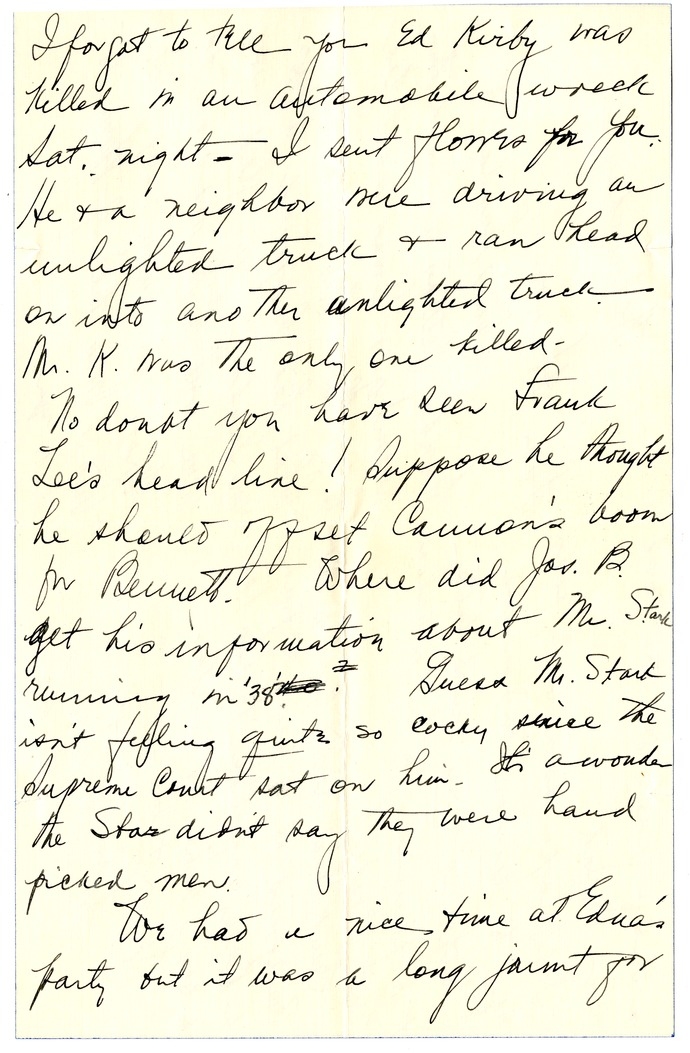 I forgot to tell you Ed Kirby was
killed in an automobile wreck
Sat. night - I sent flowers for you.
He & a neighbor were driving an
unlighted truck & ran head
on into another unlighted truck -
Mr. K. was the only one killed -
No doubt you have seen Frank
Lee's head line! Suppose he thought
he should offset Cannon's boom
for Bennett. Where did Jos. B.
get his information about Mr. Stark
running in '38?
Guess Mr. Stark
isn't feeling quite so cocky since the
Supreme Court sat on him - It's a wonder
the Star didn't say they were hand
picked men.
We had a nice time at Edna's
party but it was a long jaunt for